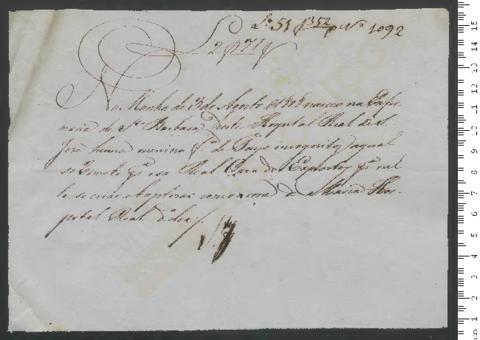 Lº 51 f 352 Nº 1092
L 2 f 71 v
Na Manha de 3 de Agosto de nasceo na Enfer
maria de Stª Barbara deste Hospital Real de S.
José huma menina fª de Pays incognitos, a qual
se remete pª essa Real Caza dos Expostos pª nel
la se criar e baptizar com o nome de Maria Hos
pital Real